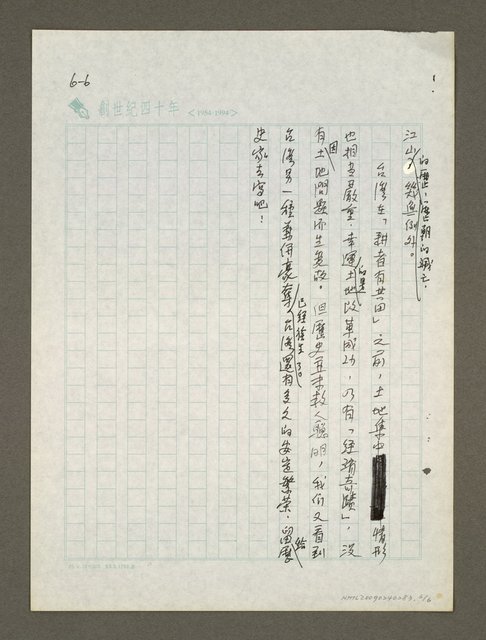 6-6
創世紀四十年 <1954-1994>
的歷史:歷朝的興亡,
江山,幾無例外。
台灣在「耕者有其田」之前,土地集中情形
也相當嚴重,幸運的是土地改革成功,乃有「經濟奇蹟」,沒
有因土地問題而生變故。但歷史並未教人聰明,我們又看到
台灣另一種兼併豪奪已經發生了。台灣還有多久的安定繁榮,留給歷
史家去寫吧!